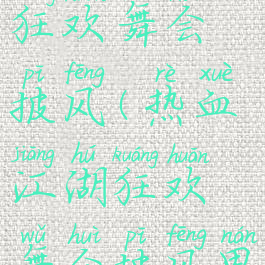 狂欢舞会
pī fēng rè xuè
披风(热血
jiāng hú kuáng huān
江湖狂欢
wǔ huì pī fēng nán
舞会披风男